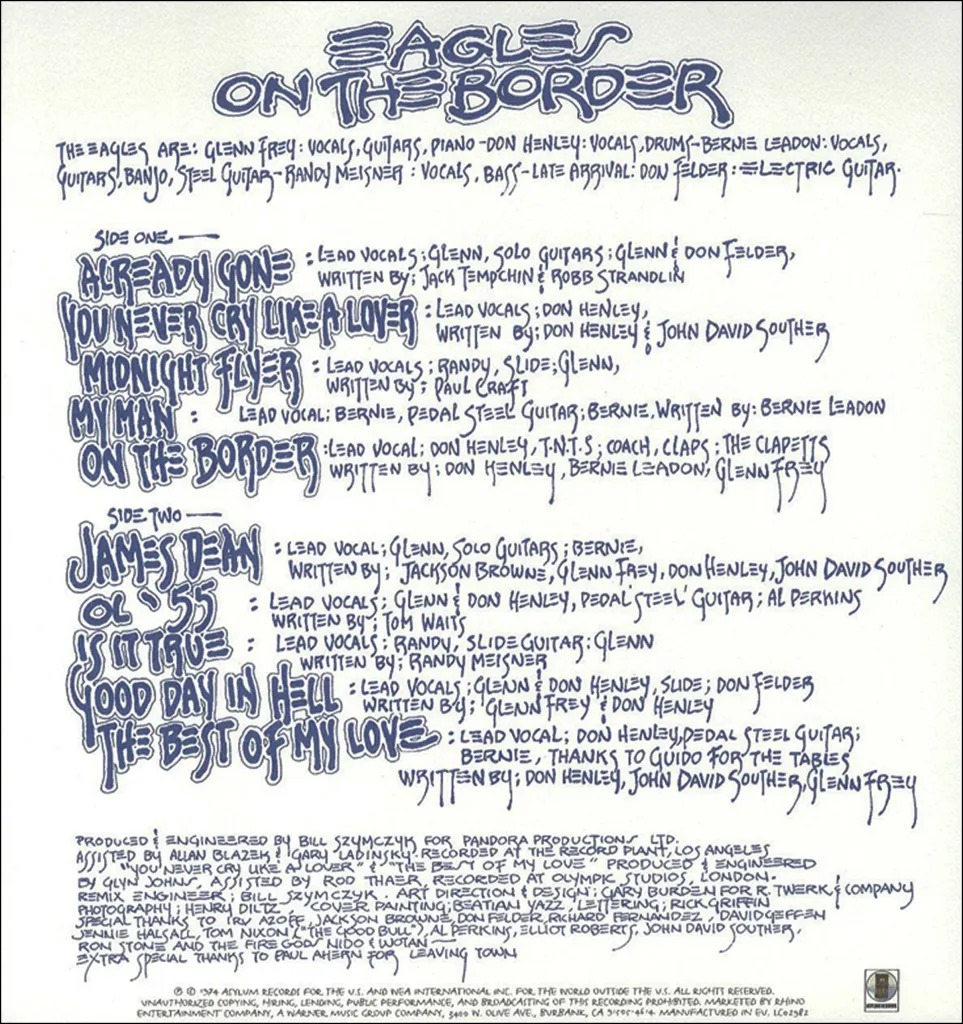 EAGLES
ON THE BORDER
THE EAGLES ARE: GLENN FREY: VOCALS, GUITARS, PIANO - DON HENLEY: VOCALS, DRUMS - BERNIE LEADON: VOCALS,
GUITARS, BANJO, STEEL GUITAR - RANDY MEISNER: VOCALS, BASS - LATE ARRIVAL: DON FELDER: ELECTRIC GUITAR.
SIDE ONE —
ALREADY GONE : LEAD VOCALS; GLENN, SOLO GUITARS; GLENN & DON FELDER,
WRITTEN BY; JACK TEMPCHIN & ROBB STRANDLIN
YOU NEVER CRY LIKE A LOVER : LEAD VOCALS; DON HENLEY,
WRITTEN BY; DON HENLEY & JOHN DAVID SOUTHER
MIDNIGHT FLYER : LEAD VOCALS; RANDY, SLIDE; GLENN,
WRITTEN BY; PAUL CRAFT
MY MAN : LEAD VOCAL; BERNIE, PEDAL STEEL GUITAR; BERNIE, WRITTEN BY: BERNIE LEADON
ON THE BORDER : LEAD VOCAL; DON HENLEY, T.N.T.S; COACH, CLAPS; THE CLAPETTS
WRITTEN BY; DON HENLEY, BERNIE LEADON, GLENN FREY
SIDE TWO —
JAMES DEAN : LEAD VOCAL; GLENN, SOLO GUITARS; BERNIE,
WRITTEN BY; JACKSON BROWNE, GLENN FREY, DON HENLEY, JOHN DAVID SOUTHER
OL '55 : LEAD VOCALS; GLENN & DON HENLEY, PEDAL STEEL GUITAR; AL PERKINS
WRITTEN BY; TOM WAITS
IS IT TRUE : LEAD VOCALS: RANDY, SLIDE GUITAR: GLENN
WRITTEN BY; RANDY MEISNER
GOOD DAY IN HELL : LEAD VOCALS; GLENN & DON HENLEY, SLIDE; DON FELDER
WRITTEN BY; GLENN FREY & DON HENLEY
THE BEST OF MY LOVE : LEAD VOCAL; DON HENLEY, PEDAL STEEL GUITAR;
BERNIE, THANKS TO GUIDO FOR THE TABLES
WRITTEN BY; DON HENLEY, JOHN DAVID SOUTHER, GLENN FREY
PRODUCED & ENGINEERED BY BILL SZYMCZYK FOR PANDORA PRODUCTIONS LTD.
ASSISTED BY ALLAN BLAZEK & GARY LADINSKY. RECORDED AT THE RECORD PLANT, LOS ANGELES
"YOU NEVER CRY LIKE A LOVER" & "THE BEST OF MY LOVE" PRODUCED & ENGINEERED
BY GLYN JOHNS, ASSISTED BY ROD THAER RECORDED AT OLYMPIC STUDIOS, LONDON.
REMIX ENGINEER; BILL SZYMCZYK. ART DIRECTION & DESIGN; GARY BURDEN FOR R. TWERK & COMPANY
PHOTOGRAPHY; HENRY DILTZ. COVER PAINTING; BEATIAN YAZZ, LETTERING; RICK GRIFFIN
SPECIAL THANKS TO IRV AZOFF, JACKSON BROWNE, DON FELDER, RICHARD FERNANDEZ, DAVID GEFFEN
JENNIE HALSALL, TOM NIXON ("THE GOOD BULL"), AL PERKINS, ELLIOT ROBERTS, JOHN DAVID SOUTHER,
RON STONE AND THE FIRE GODS NIDO & WOTAN —
EXTRA SPECIAL THANKS TO PAUL AHERN FOR LEAVING TOWN
℗ © 1974 ASYLUM RECORDS FOR THE U.S. AND WEA INTERNATIONAL INC. FOR THE WORLD OUTSIDE THE U.S. ALL RIGHTS RESERVED.
UNAUTHORIZED COPYING, HIRING, LENDING, PUBLIC PERFORMANCE, AND BROADCASTING OF THIS RECORDING PROHIBITED. MARKETED BY RHINO
ENTERTAINMENT COMPANY, A WARNER MUSIC GROUP COMPANY, 3400 W. OLIVE AVE., BURBANK, CA 91505-4614. MANUFACTURED IN EU. LC02982